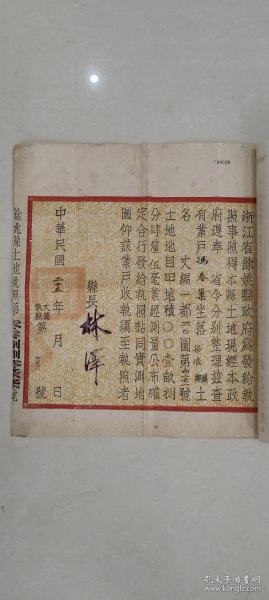 浙江省餘姚縣政府為發給執
照事照得本縣土地現經本政
府遵奉 省令分別整理茲查
有業戶馮春葉坐落 鄉鎮土
名 丈編一都一圖第 號
土地地目田地積〇〇壹畝捌
分肆釐伍毫業經測量公布確
定合行發給執照黏同實測地
圖仰該業戶收執須至執照者
縣長 林澤
中華民國二五年 月 日
丈圖執照第 號
餘姚縣土地執照第 號
孔夫子旧书网